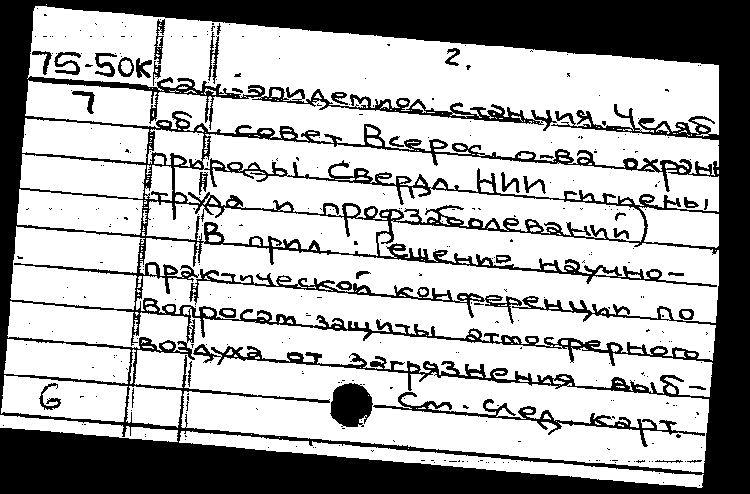 2.
75-50К
7
сан.-эпидемиол. станция. Челяб.
обл. совет Всерос. о-ва охраны
природы. Свердл. НИИ гигиены
труда и профзаболеваний)
В прил.: Решение научно-
практической конференции по
вопросам защиты атмосферного
воздуха от загрязнения выб-
6
См. след. карт.